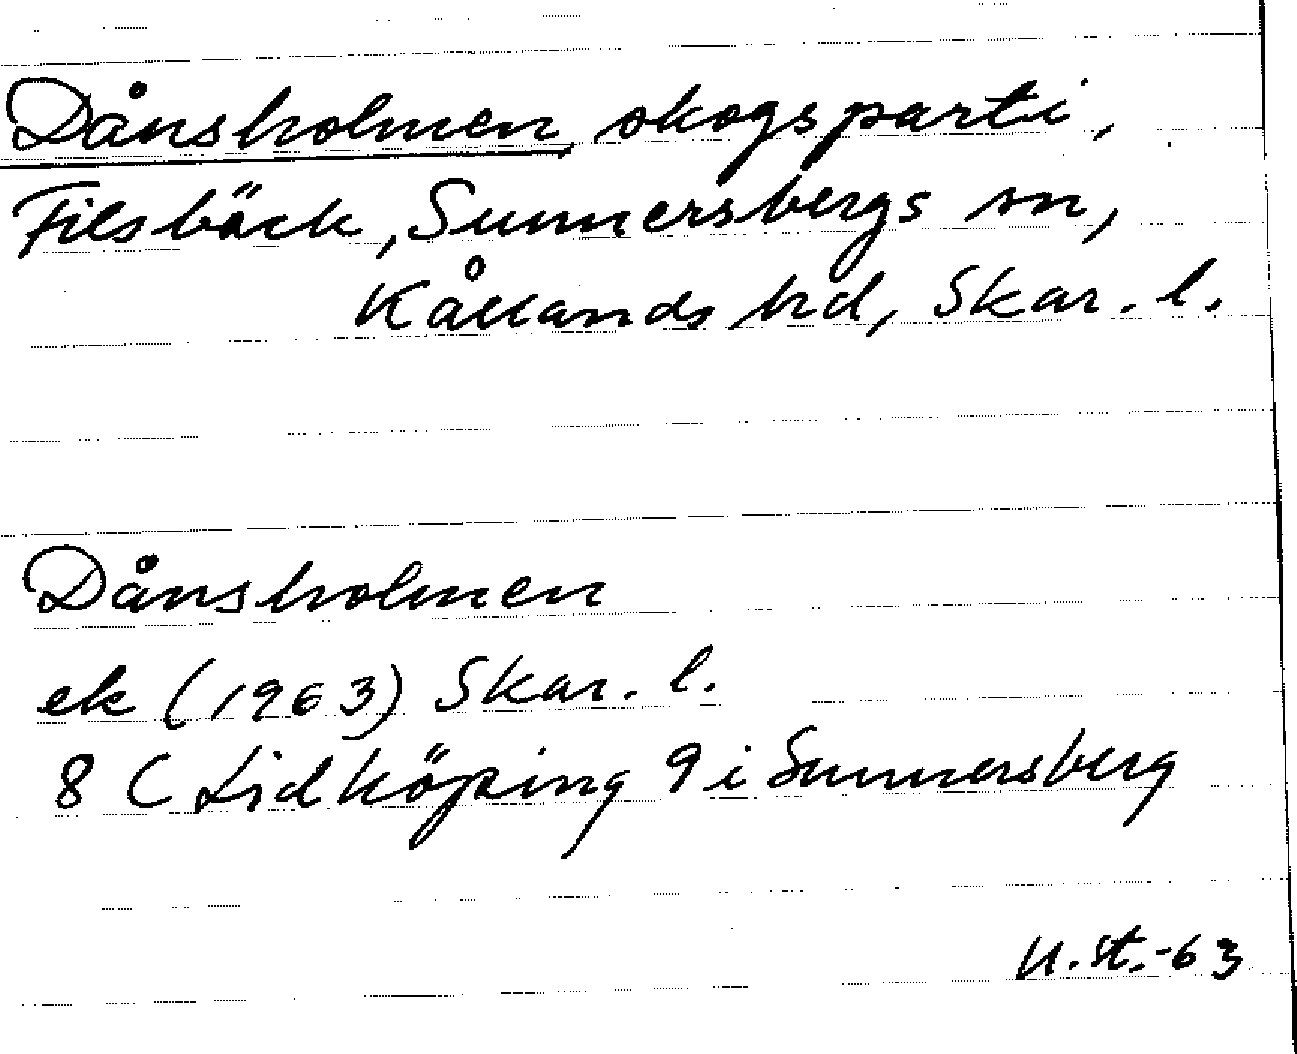 Dånsholmen, skogsparti,
Filsbäck, Sunnersbergs sn,
Kållands hd, Skar. l.
Dånsholmen
ek (1963) Skar. l.
8 C Lidköping 9 i Sunnersberg
U. St. -63